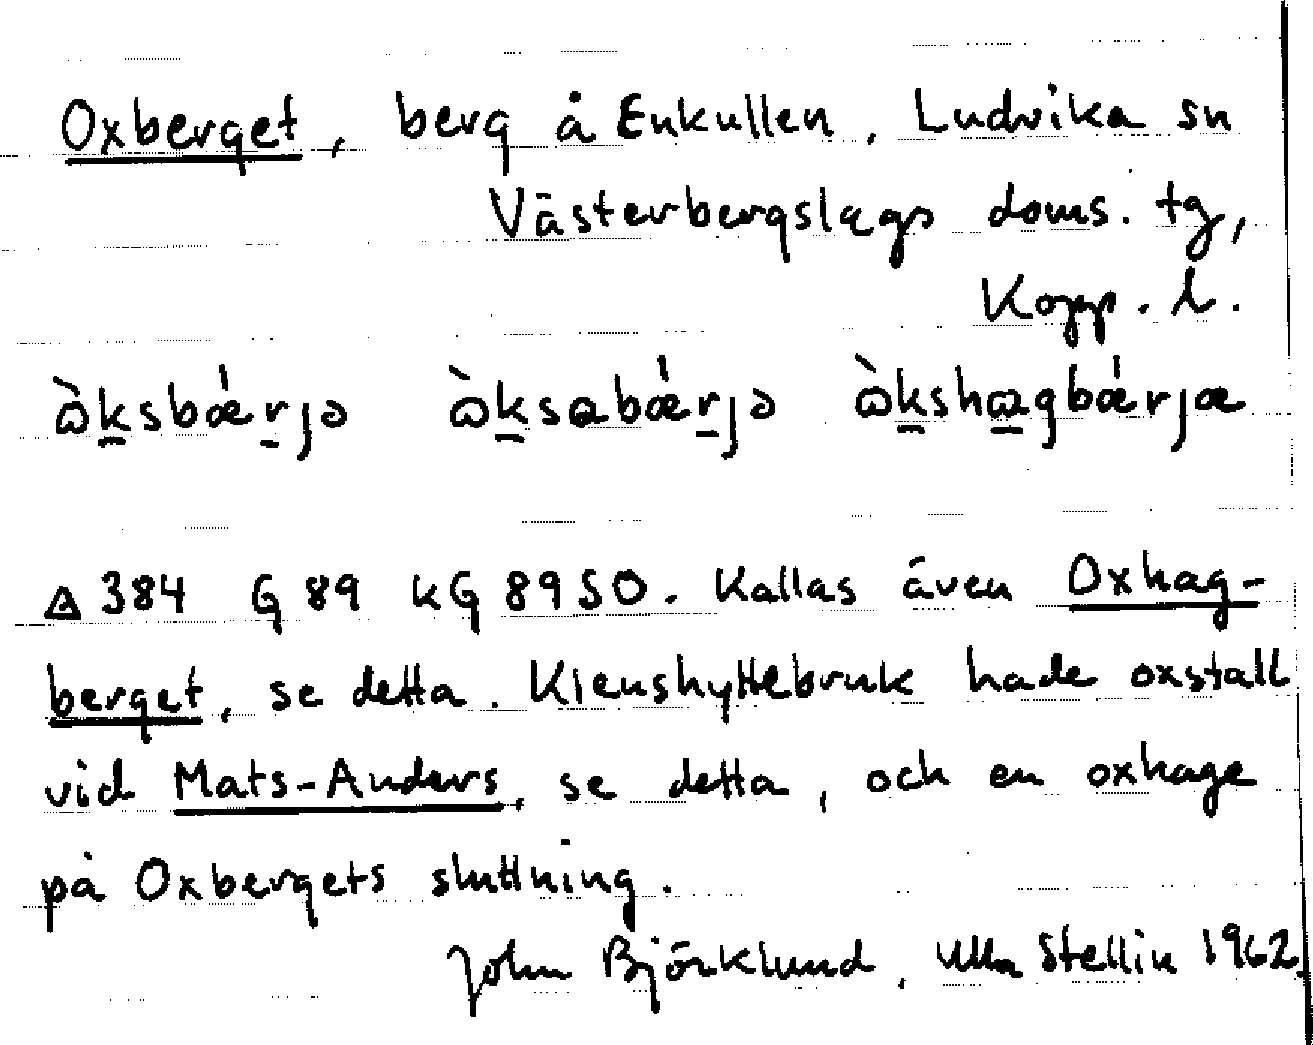 Oxberget, berg å Enkullen, Ludvika sn
Västerbergslags doms. tg,
Kopp. l.
ɷ̀ksbǽrjə ɷ̀ksabǽrjə ɷ̀kshagbǽrjæ
△ 384 G 89 kG 8950. Kallas även Oxhag-
berget, se detta. Klenshyttebruk hade oxstall
vid Mats-Anders, se detta, och en oxhage
på Oxbergets sluttning.
John Björklund, Ulla Stellin 1962.